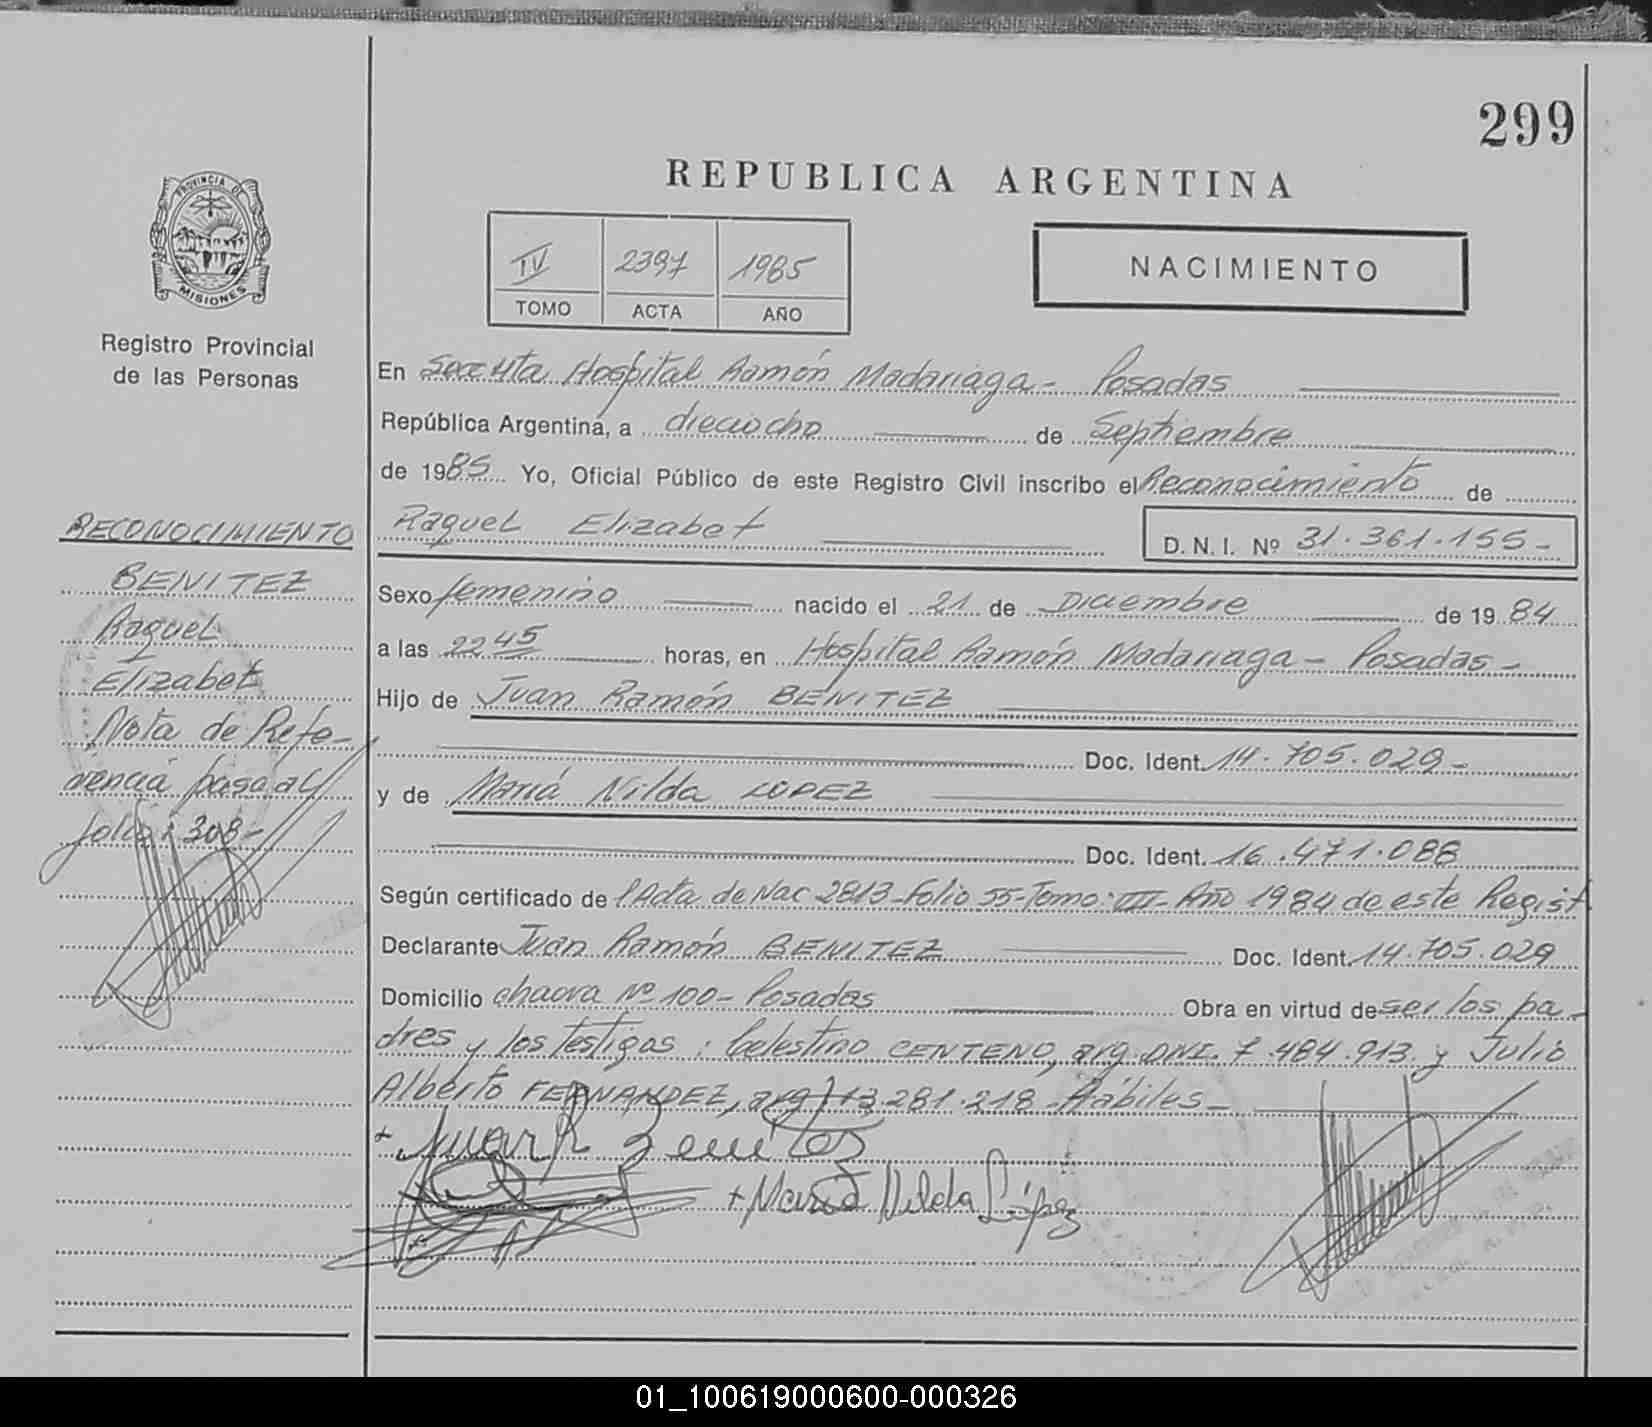 299
REPUBLICA ARGENTINA
PROVINCIA DE
MISIONES
Registro Provincial
de las Personas
IV 2397 1985
TOMO ACTA AÑO
NACIMIENTO
En Secc 4ta Hospital Ramón Madariaga - Posadas
República Argentina, a dieciocho de Septiembre
de 1985 Yo, Oficial Público de este Registro Civil inscribo el Reconocimiento de
Raquel Elizabet D. N. I. Nº 31.361.155-
Sexo femenino nacido el 21 de Diciembre de 1984
a las 22 45 horas, en Hospital Ramón Madariaga - Posadas -
Hijo de Juan Ramón BENITEZ
Doc. Ident. 14.705.029-
y de María Nilda LOPEZ
Doc. Ident. 16.471.088
Según certificado de l'Acta de Nac 2813-Folio 55-Tomo: III- Año 1984 de este Regist.
Declarante Juan Ramón BENITEZ Doc. Ident. 14.705.029
Domicilio chacra Nº 100- Posadas Obra en virtud de ser los pa-
dres y los testigos: Celestino CENTENO, arg. DNI. 7.484.913. y Julio
Alberto FERNANDEZ, arg 13.281.218 Hábiles-
+ Juan R Benites
+ María Nilda López
RECONOCIMIENTO
BENITEZ
Raquel
Elizabet
Nota de Refe-
rencia pasa al
folio: 308-
01_100619000600-000326